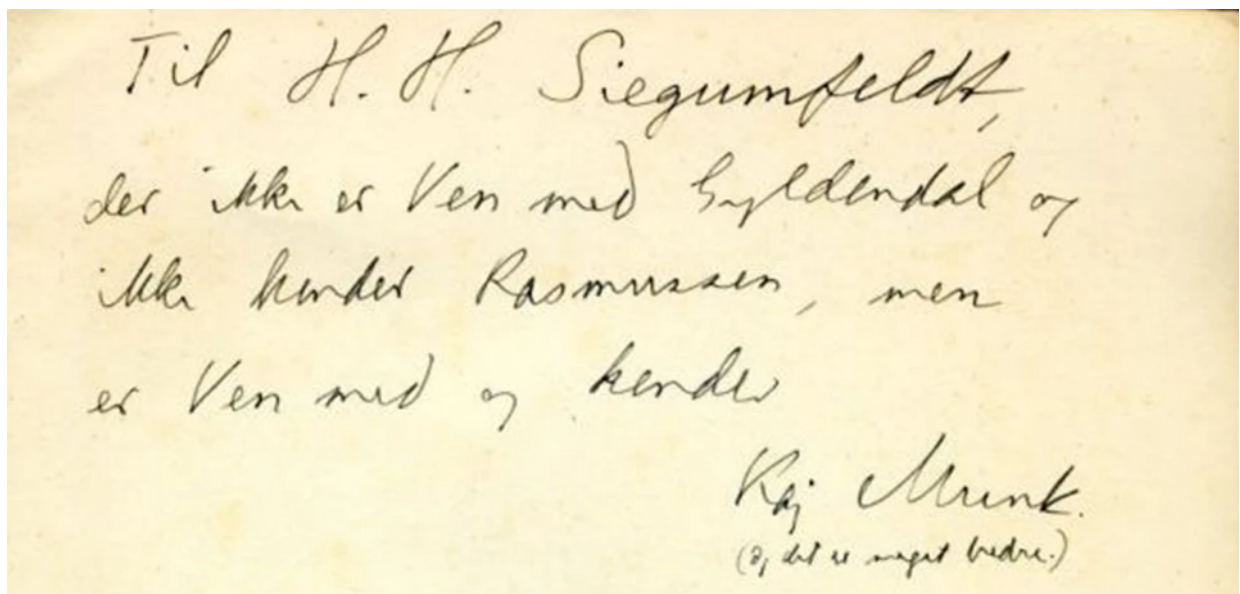 Til H. H. Siegumfeldt,
der ikke er Ven med Gyldendal og
ikke kender Rasmussen, men
er Ven med og kender
Kaj Munk.
(Og det er meget bedre.)